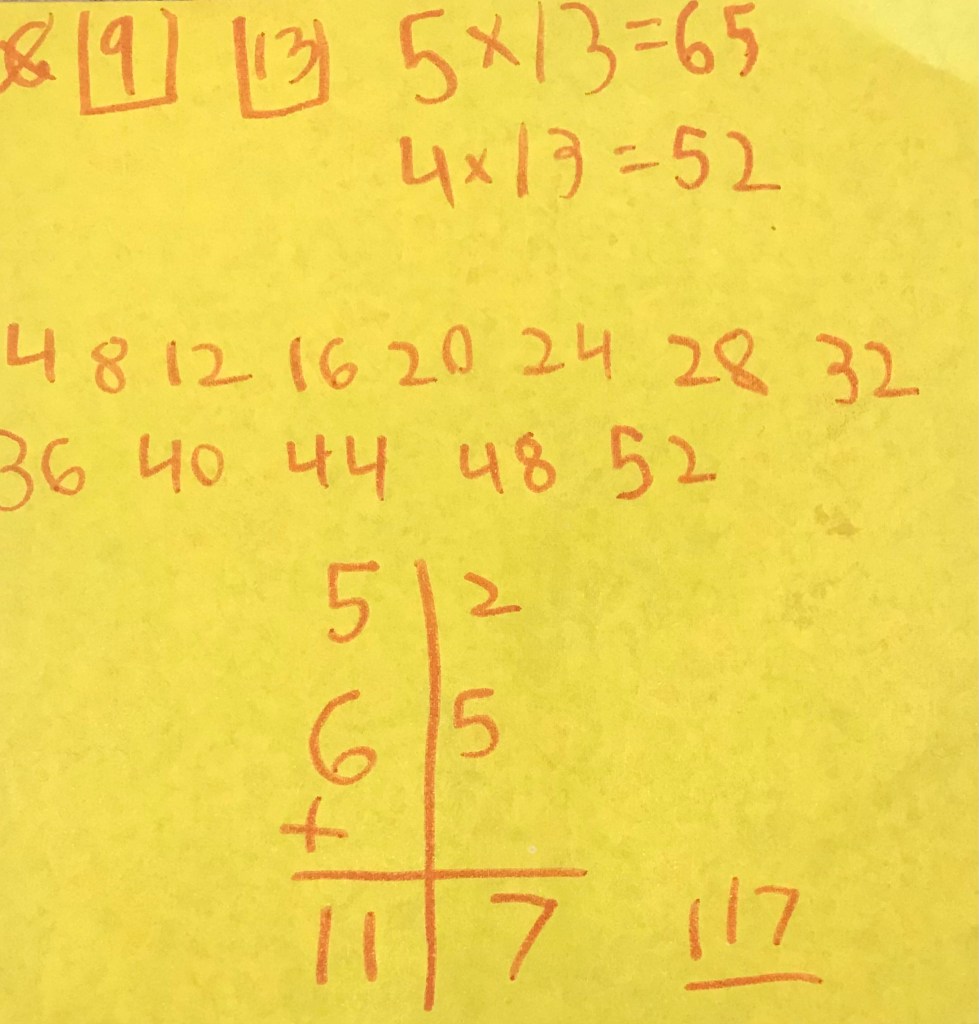 9 13 5×13=65
4×13=52
4 8 12 16 20 24 28 32
36 40 44 48 52
5 2
6 5
+
11 7 117